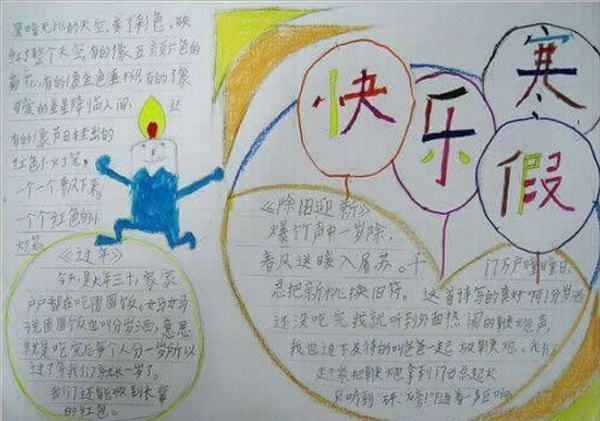 黑暗无比的天空,变了彩色,映
红了整个天空有的像五颜六色的
菊花,有的像金色垂柳有的像
可爱的星星降临人间, 还
有的像节日挂出的
红色小灯笼,
一个一个飘下来
一个个红色的小
灯笼
《过年》
今天是大年三十,家家
户户都在吃团圆饭。妈妈
说团圆饭也叫分岁酒,意思
就是吃完后每个人分一岁所以
过了年我们每长一岁了。
我们还能收到长辈
的红包。
快乐寒假
《除旧迎新》
爆竹声中一岁除,
春风送暖入屠苏。千
门万户曈曈日,
总把新桃换旧符。这首诗写的真好啊!分岁酒
还没吃完我就听到外面热闹的鞭炮声,
我也迫不及待的叫爸爸一起放鞭炮。我们
赶紧把鞭炮拿到门口点起火
只听到“砰、磅”随着一声响